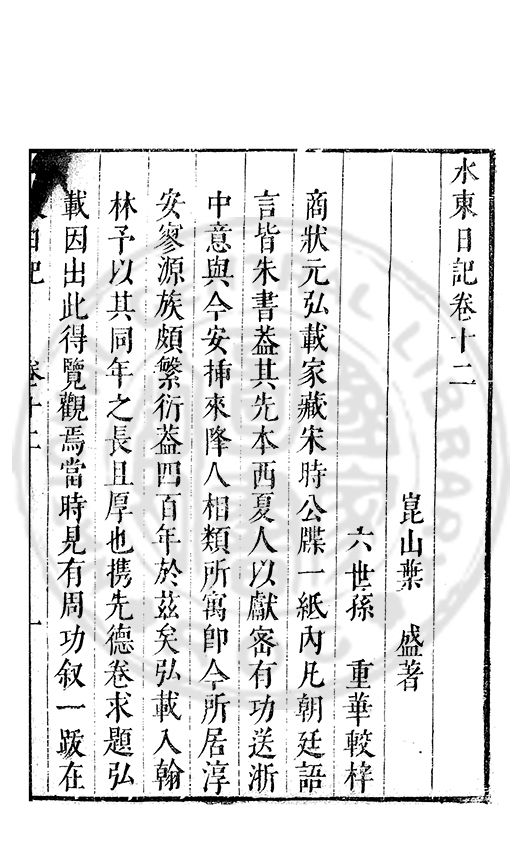 水東日記卷十二
崑山葉 盛著
六世孫 重華較梓
商狀元弘載家藏宋時公牒一紙內凡朝廷語
言皆朱書葢其先本西夏人以獻密有功送浙
中意與今安揷來降人相類所寓卽今所居淳
安寥源族頗繁衍葢四百年於茲矣弘載入翰
林予以其同年之長且厚也携先德卷求題弘
載因出此得覽觀焉當時見有周功叙一跋在
日記 卷十二 一